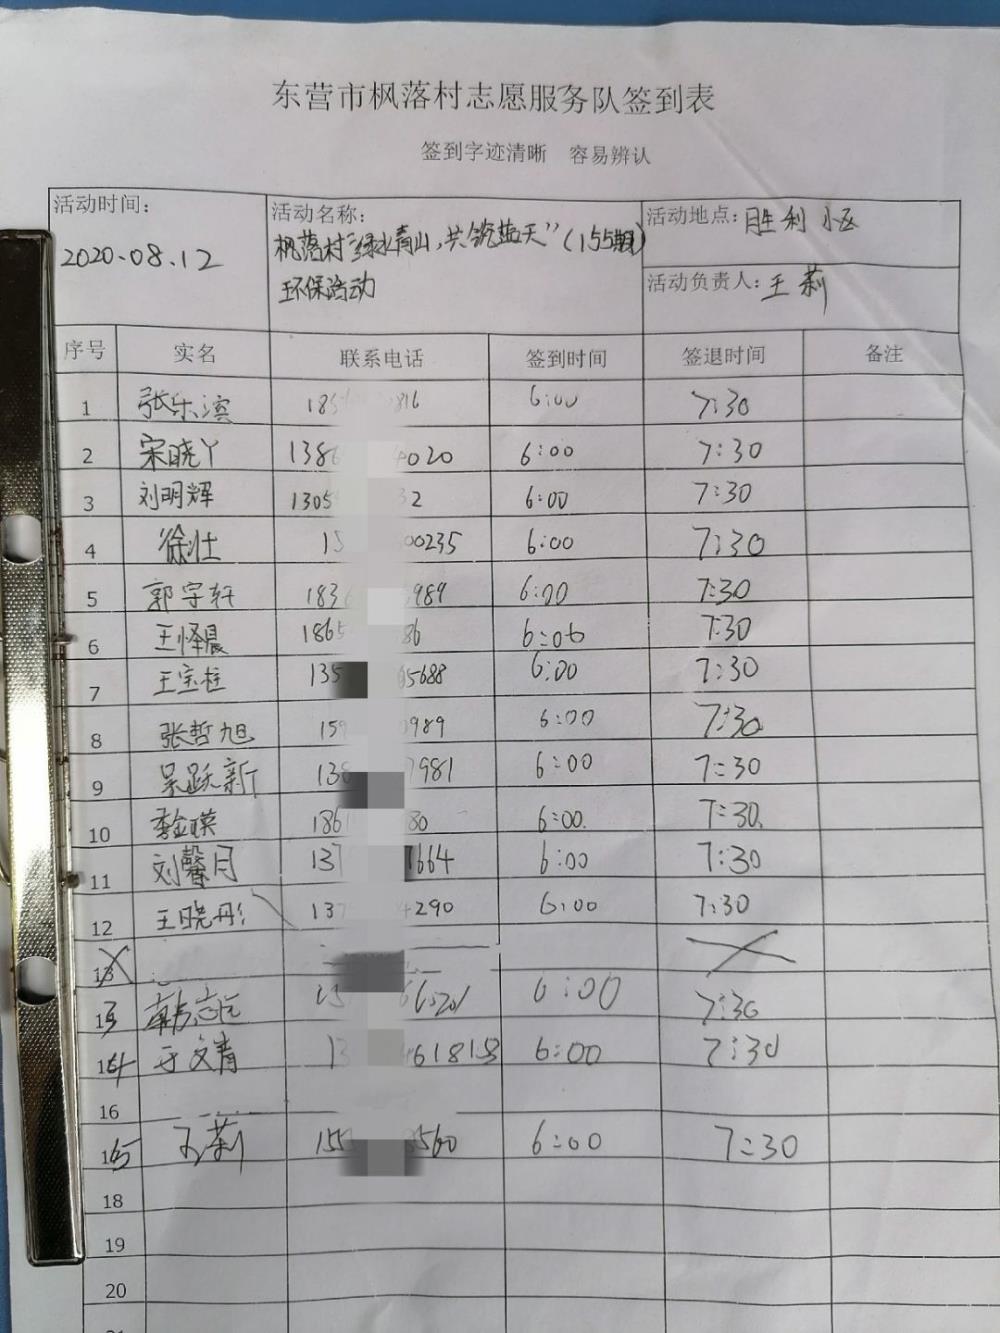 东营市枫落村志愿服务队签到表
签到字迹清晰 容易辨认
活动时间:
2020.08.12
活动名称:
枫落村"绿水青山,共筑蓝天"(155期)
环保活动
活动地点:胜利小区
活动负责人:王莉
序号 实名 联系电话 签到时间 签退时间 备注
1 张乐滨 185 816 6:00 7:30
2 宋晓丫 138 4020 6:00 7:30
3 刘明辉 1305 32 6:00 7:30
4 徐壮 15 00235 6:00 7:30
5 郭宇轩 183 989 6:00 7:30
6 王怿晨 1865 86 6:00 7:30
7 王宝柱 135 5688 6:00 7:30
8 张哲旭 159 0989 6:00 7:30
9 吴跃新 138 7981 6:00 7:30
10 186 80 6:00 7:30
11 刘馨月 137 1664 6:00 7:30
12 王晓彤 137 4290 6:00 7:30
13
13 韩 6:00 7:30
14 于文青 13 461813 6:00 7:30
16
15 王莉 155 3560 6:00 7:30
18
19
20